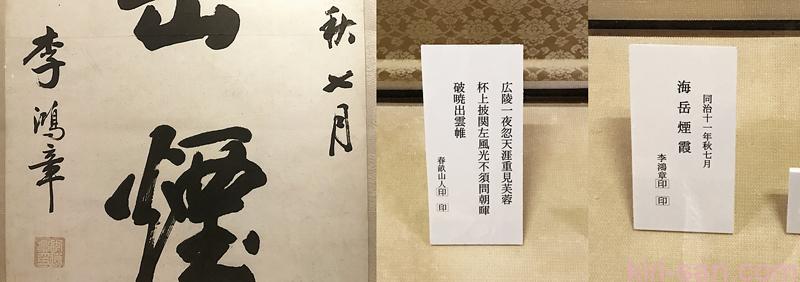 秋七月
煙
李鴻章
広陵一夜忽天涯重見芙蓉
杯上披関左風光不須問朝暉
破暁出雲帷
春畝山人印 印
同治十一年秋七月
海岳煙霞
李鴻章印 印